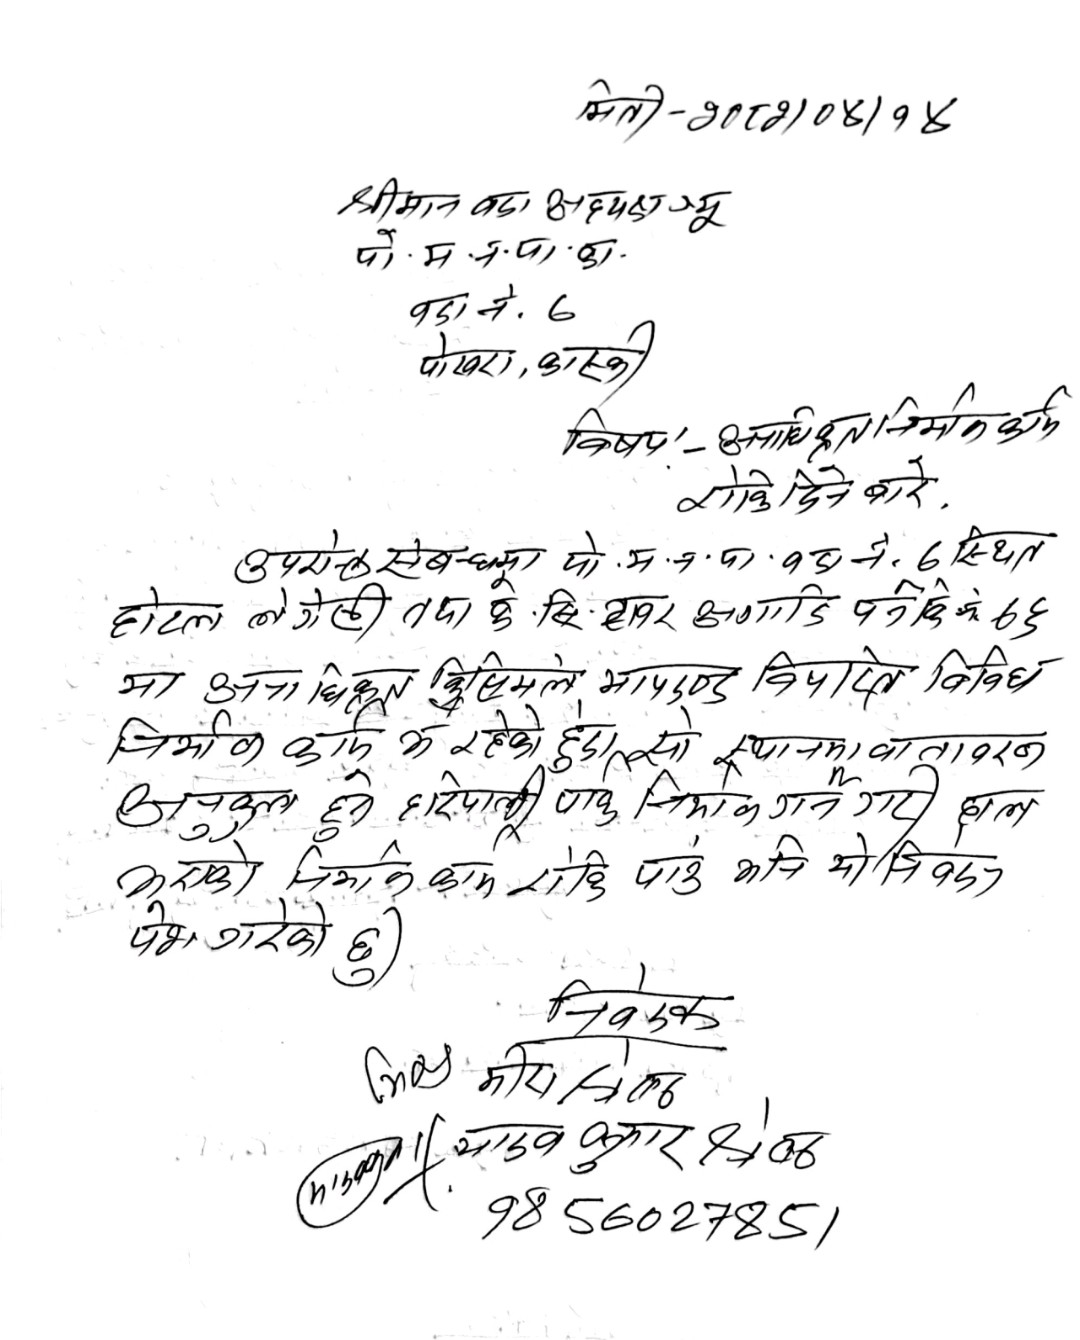 मिति - २०८२/०४/१४
श्रीमान वडा अध्यक्ष ज्यू
पो. म. न. पा. का.
वडा नं. 6
पोखरा, कास्की
विषय :- अनाधिकृत निर्माण कार्य
रोकि दिने बारे.
उपरोक्त संबन्धमा पो. म. न. पा. वडा नं. 6 स्थित
होटल तथा के. सि. अगाडि पर्ने कि.नं. ७६
मा अनाधिकृत किसिमले मापदण्ड विपरित विविध
निर्माण कार्य भै रहेको हुंदा सो स्थानमा वातावरण
अनुकुल हुने हरियाली पार्क निर्माण गर्ने गरी हाल
भएको निर्माण काम रोकि पाउं भनि यो निवेदन
पेश गरेको छु।
निवेदक
मीरा श्रेष्ठ
यादव कुमार श्रेष्ठ
9856027851